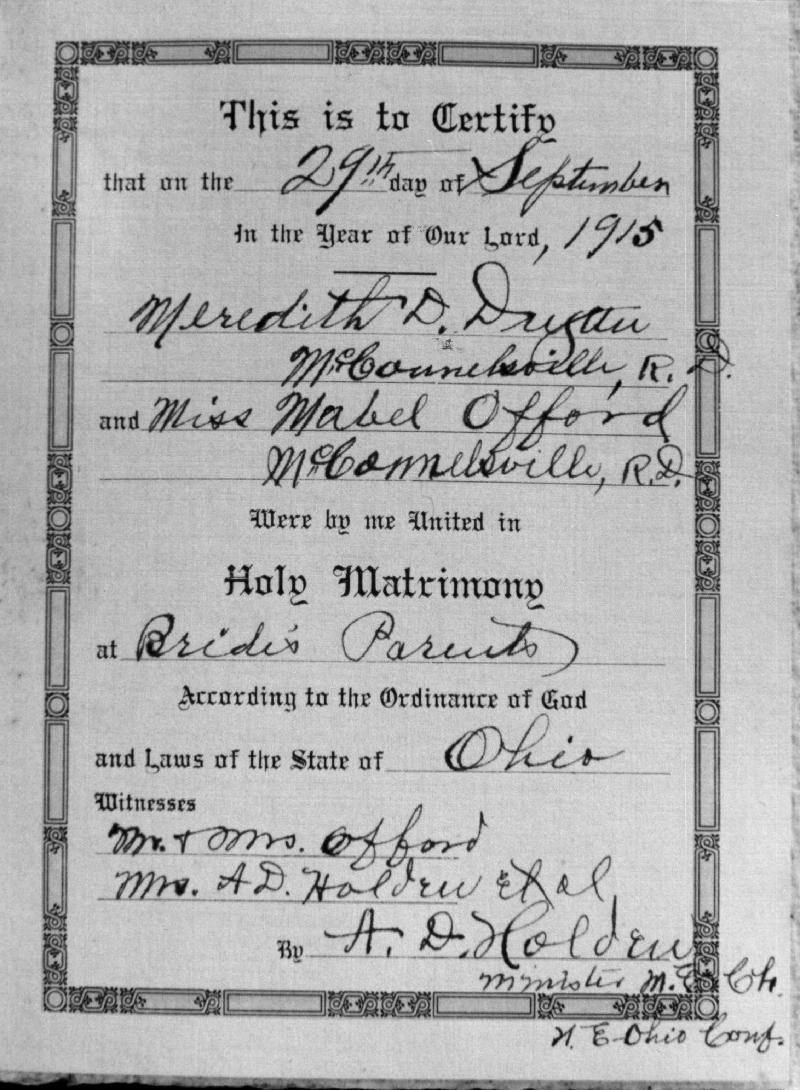 This is to Certify
that on the 29th day of September
In the Year of Our Lord, 1915
Meredith D.
McConnelsville, R. D.
and Miss Mabel Offord
McConnelsville, R.D.
Were by me United in
Holy Matrimony
at Bride's Parents
According to the Ordinance of God
and Laws of the State of Ohio
Witnesses
Mr. & Mrs. Offord
Mrs. A D. Holden et al
By A. D. Holden
Minister M. E. Ch.
N. E Ohio Conf.